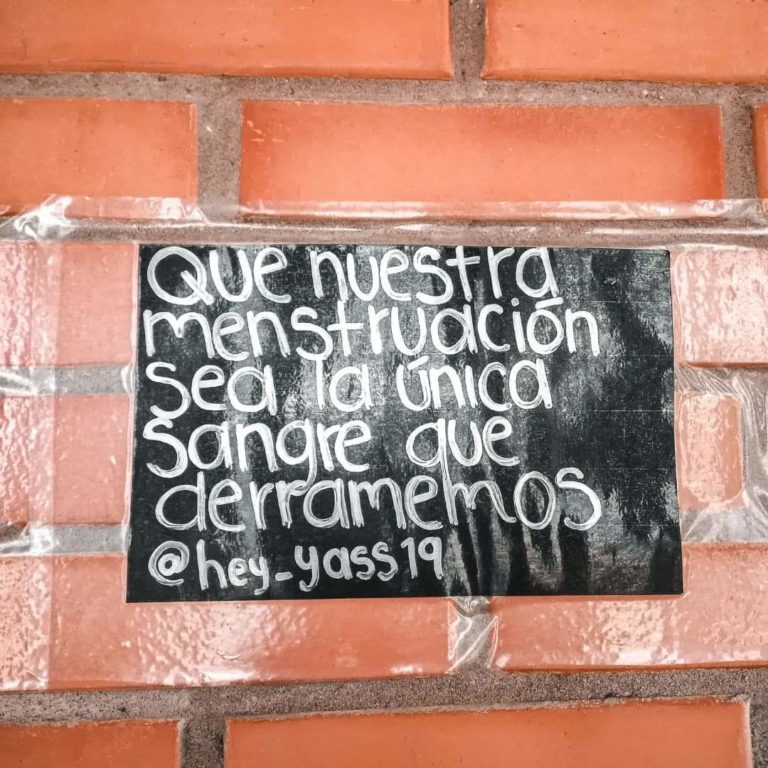 Que nuestra
menstruación
sea la única
sangre que
derramemos
@hey_yass19